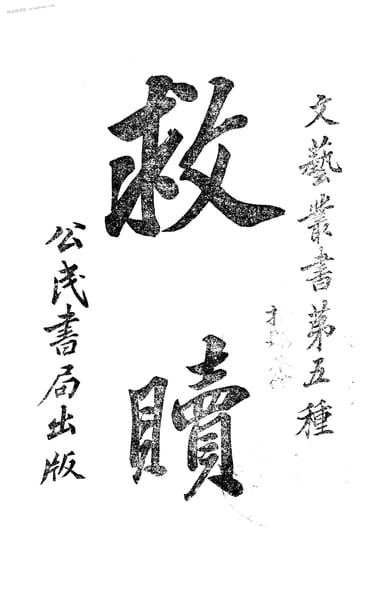 文藝叢書第五種
救贖
公民書局出版